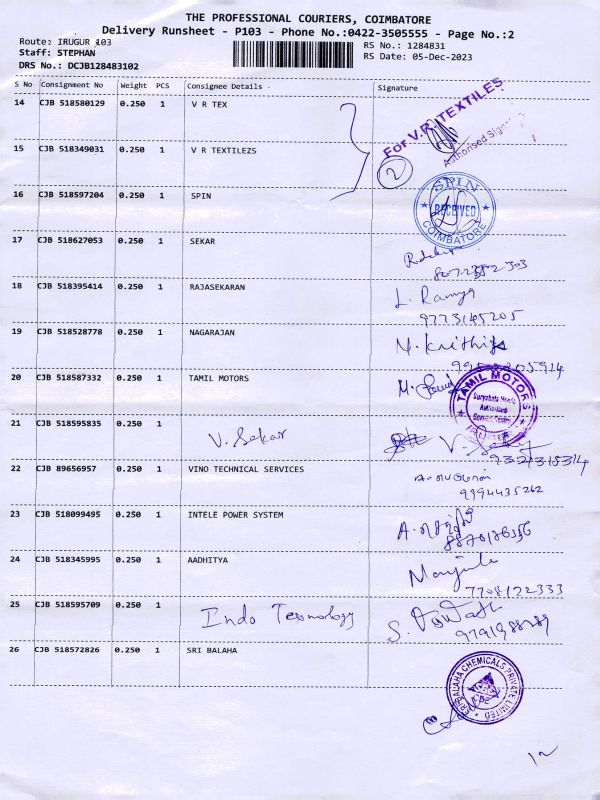 THE PROFESSIONAL COURIERS, COIMBATORE
Delivery Runsheet - P103 - Phone No.:0422-3505555 - Page No.:2
Route: IRUGUR 103
Staff: STEPHAN
DRS No.: DCJB128483102
RS No.: 1284831
RS Date: 05-Dec-2023
S No Consignment No Weight PCS Consignee Details Signature
14 CJB 518580129 0.250 1 V R TEX
For V.R. TEXTILES
Authorised
15 CJB 518349031 0.250 1 V R TEXTILEZS
2
16 CJB 518597204 0.250 1 SPIN
SPIN
RECEIVED
COIMBATORE
17 CJB 518627053 0.250 1 SEKAR
18 CJB 518395414 0.250 1 RAJASEKARAN
L. Ramya
9773145205
19 CJB 518528778 0.250 1 NAGARAJAN
M. Krithiga
20 CJB 518587332 0.250 1 TAMIL MOTORS
TAMIL MOTORS
Authorised
Service Centre
21 CJB 518595835 0.250 1 V. Sekar
22 CJB 89656957 0.250 1 VINO TECHNICAL SERVICES
9994435262
23 CJB 518099495 0.250 1 INTELE POWER SYSTEM
24 CJB 518345995 0.250 1 AADHITYA
Manjula
7708122333
25 CJB 518595709 0.250 1 Indo Texnology
26 CJB 518572826 0.250 1 SRI BALAHA
SRI BALAHA CHEMICALS PRIVATE LIMITED